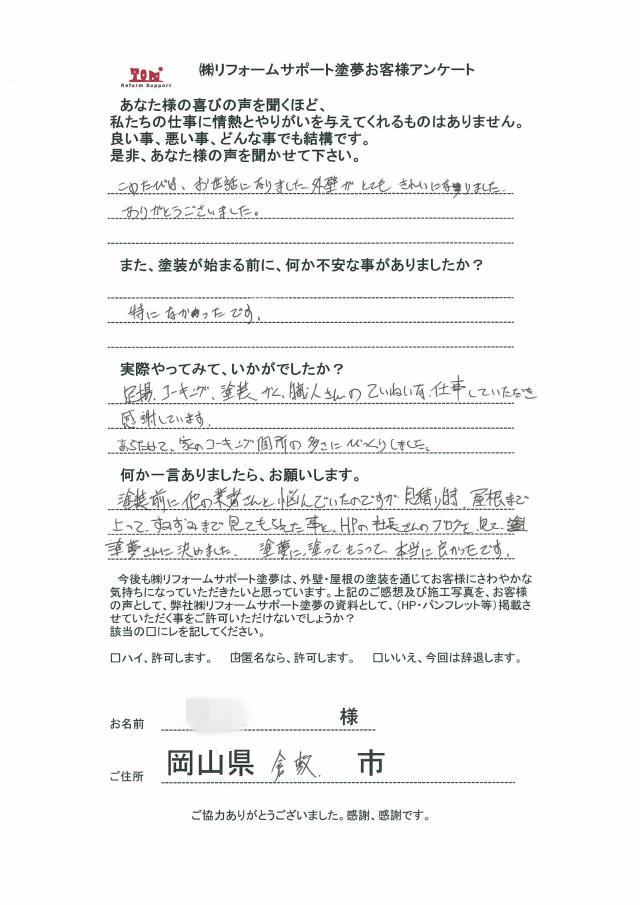 TOM
Reform Support
㈱リフォームサポート塗夢お客様アンケート
あなた様の喜びの声を聞くほど、
私たちの仕事に情熱とやりがいを与えてくれるものはありません。
良い事、悪い事、どんな事でも結構です。
是非、あなた様の声を聞かせて下さい。
このたびは、お世話になりました。外壁がとてもきれいになりました。
ありがとうございました。
また、塗装が始まる前に、何か不安な事がありましたか?
特になかったです。
実際やってみて、いかがでしたか?
足場、コーキング、塗装、かく、職人さんのていねいな仕事していただき
感謝しています。
あらためて、家のコーキング個所の多さにびっくりしました。
何か一言ありましたら、お願いします。
塗装前に他の業者さんと悩んでいたのですが見積り時、屋根まで
上って、すみずみまで見てもらえた事と、HPの社長さんのブログを見て、
塗夢さんに決めました。 塗夢に、塗ってもらって本当に良かったです。
今後も㈱リフォームサポート塗夢は、外壁・屋根の塗装を通じてお客様にさわやかな
気持ちになっていただきたいと思っています。上記のご感想及び施工写真を、お客様
の声として、弊社㈱リフォームサポート塗夢の資料として、(HP・パンフレット等)掲載さ
せていただく事をご許可いただけないでしょうか?
該当の□にレを記してください。
□ハイ、許可します。 ☑匿名なら、許可します。 □いいえ、今回は辞退します。
お名前 様
ご住所 岡山県 倉敷 市
ご協力ありがとうございました。感謝、感謝です。